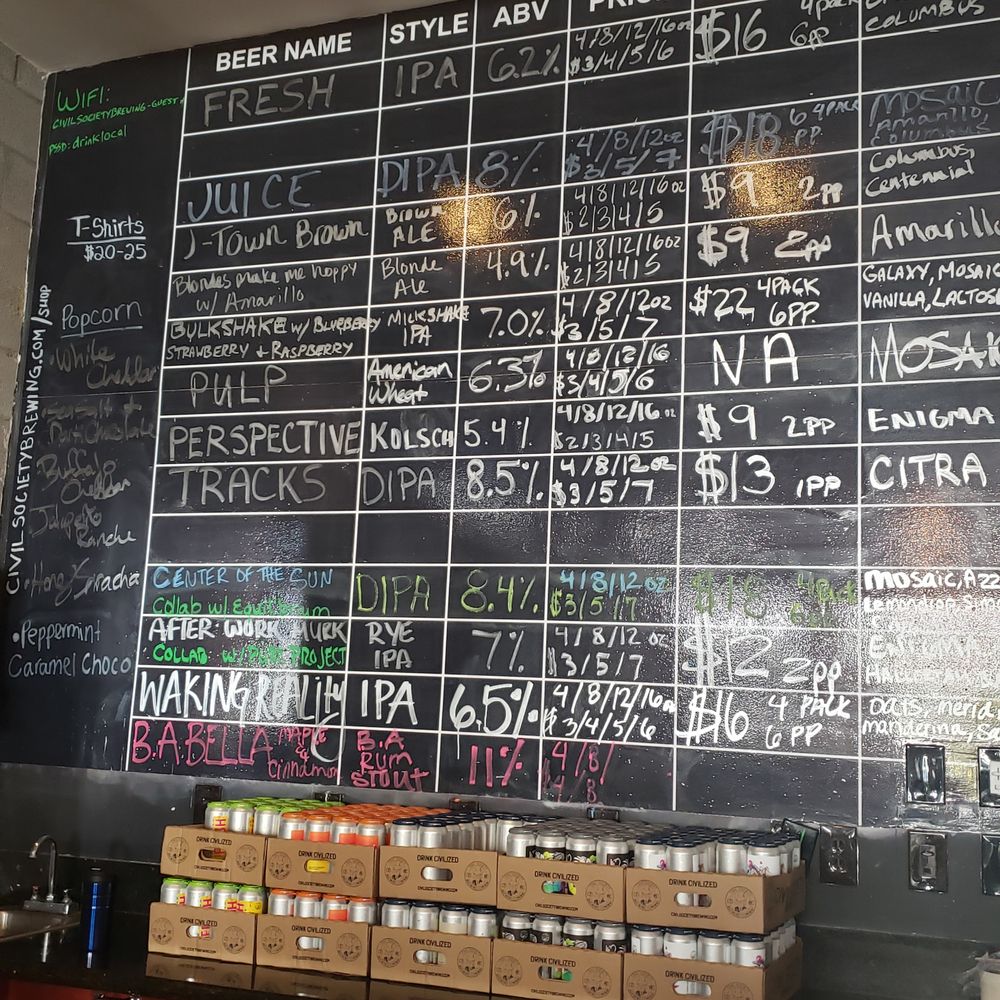 BEER NAME STYLE ABV
FRESH IPA 6.2% 4/8/12/16oz $3/4/5/6 $16 4pack 6pp COLUMBUS
WIFI:
CIVILSOCIETYBREWING-GUEST
PSSD: drinklocal
JUICE DIPA 8% 4/8/12oz $3/5/7 $18 4PACK 6PP MOSAIC, Amarillo, Columbus
J-TOWN BROWN BROWN ALE 6% 4/8/12/16oz $2/3/4/5 $9 2PP Columbus, Centennial
T-Shirts
$20-25
Blondes make me hoppy w/ Amarillo Blonde Ale 4.9% 4/8/12/16oz $2/3/4/5 $9 2pp Amarillo
BULKSHAKE w/ BLUEBERRY STRAWBERRY + RASPBERRY MILKSHAKE IPA 7.0% 4/8/12oz $3/5/7 $22 4PACK 6PP GALAXY, MOSAIC VANILLA, LACTOS
PULP American Wheat 6.3% 4/8/12/16 $3/4/5/6 NA MOSAIC
PERSPECTIVE KOLSCH 5.4% 4/8/12/16oz $2/3/4/5 $9 2PP ENIGMA
TRACKS DIPA 8.5% 4/8/12oz $3/5/7 $13 1PP CITRA
CENTER OF THE SUN Collab w/ Equilibrium DIPA 8.4% 4/8/12oz $3/5/7 $18 4Pack MOSAIC,
AFTER WORK MURK COLLAB w/ PURE PROJECT RYE IPA 7% 4/8/12oz $3/5/7 $12 2pp
WAKING REALITY IPA 6.5% 4/8/12/16oz $3/4/5/6 $16 4 PACK 6PP oats,
B.A. BELLA MAPLE & Cinnamon B.A RUM STOUT 11% 4/8/
CIVILSOCIETYBREWING.COM/SHOP
Popcorn
• White Cheddar
• Sea Salt +
Buffalo Cheddar
Jalapeño Ranche
• Honey Sriracha
• Peppermint
Caramel Choco
DRINK CIVILIZED
DRINK CIVILIZED
DRINK CIVILIZED
DRINK CIVILIZED
DRINK CIVILIZED
DRINK CIVILIZED
DRINK CIVILIZED
DRINK CIVILIZED
DRINK CIVILIZED
DRINK CIVILIZED